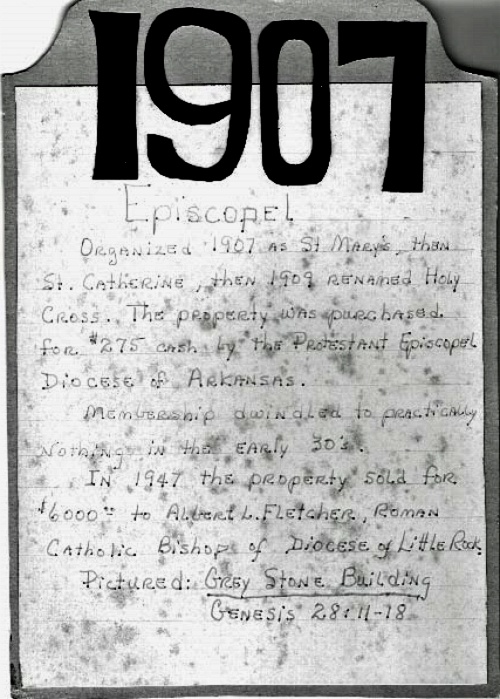 1907
Episcopel
Organized 1907 as St Mary's, then
St. Catherine, then 1909 renamed Holy
Cross. The property was purchased
for $275 cash by the Protestant Episcopel
Diocese of Arkansas.
Membership dwindled to practically
Nothing in the early 30's.
In 1947 the property sold for
$6000⁰⁰ to Albert L. Fletcher, Roman
Catholic Bishop of Diocese of Little Rock
Pictured: Grey Stone Building
Genesis 28:11-18